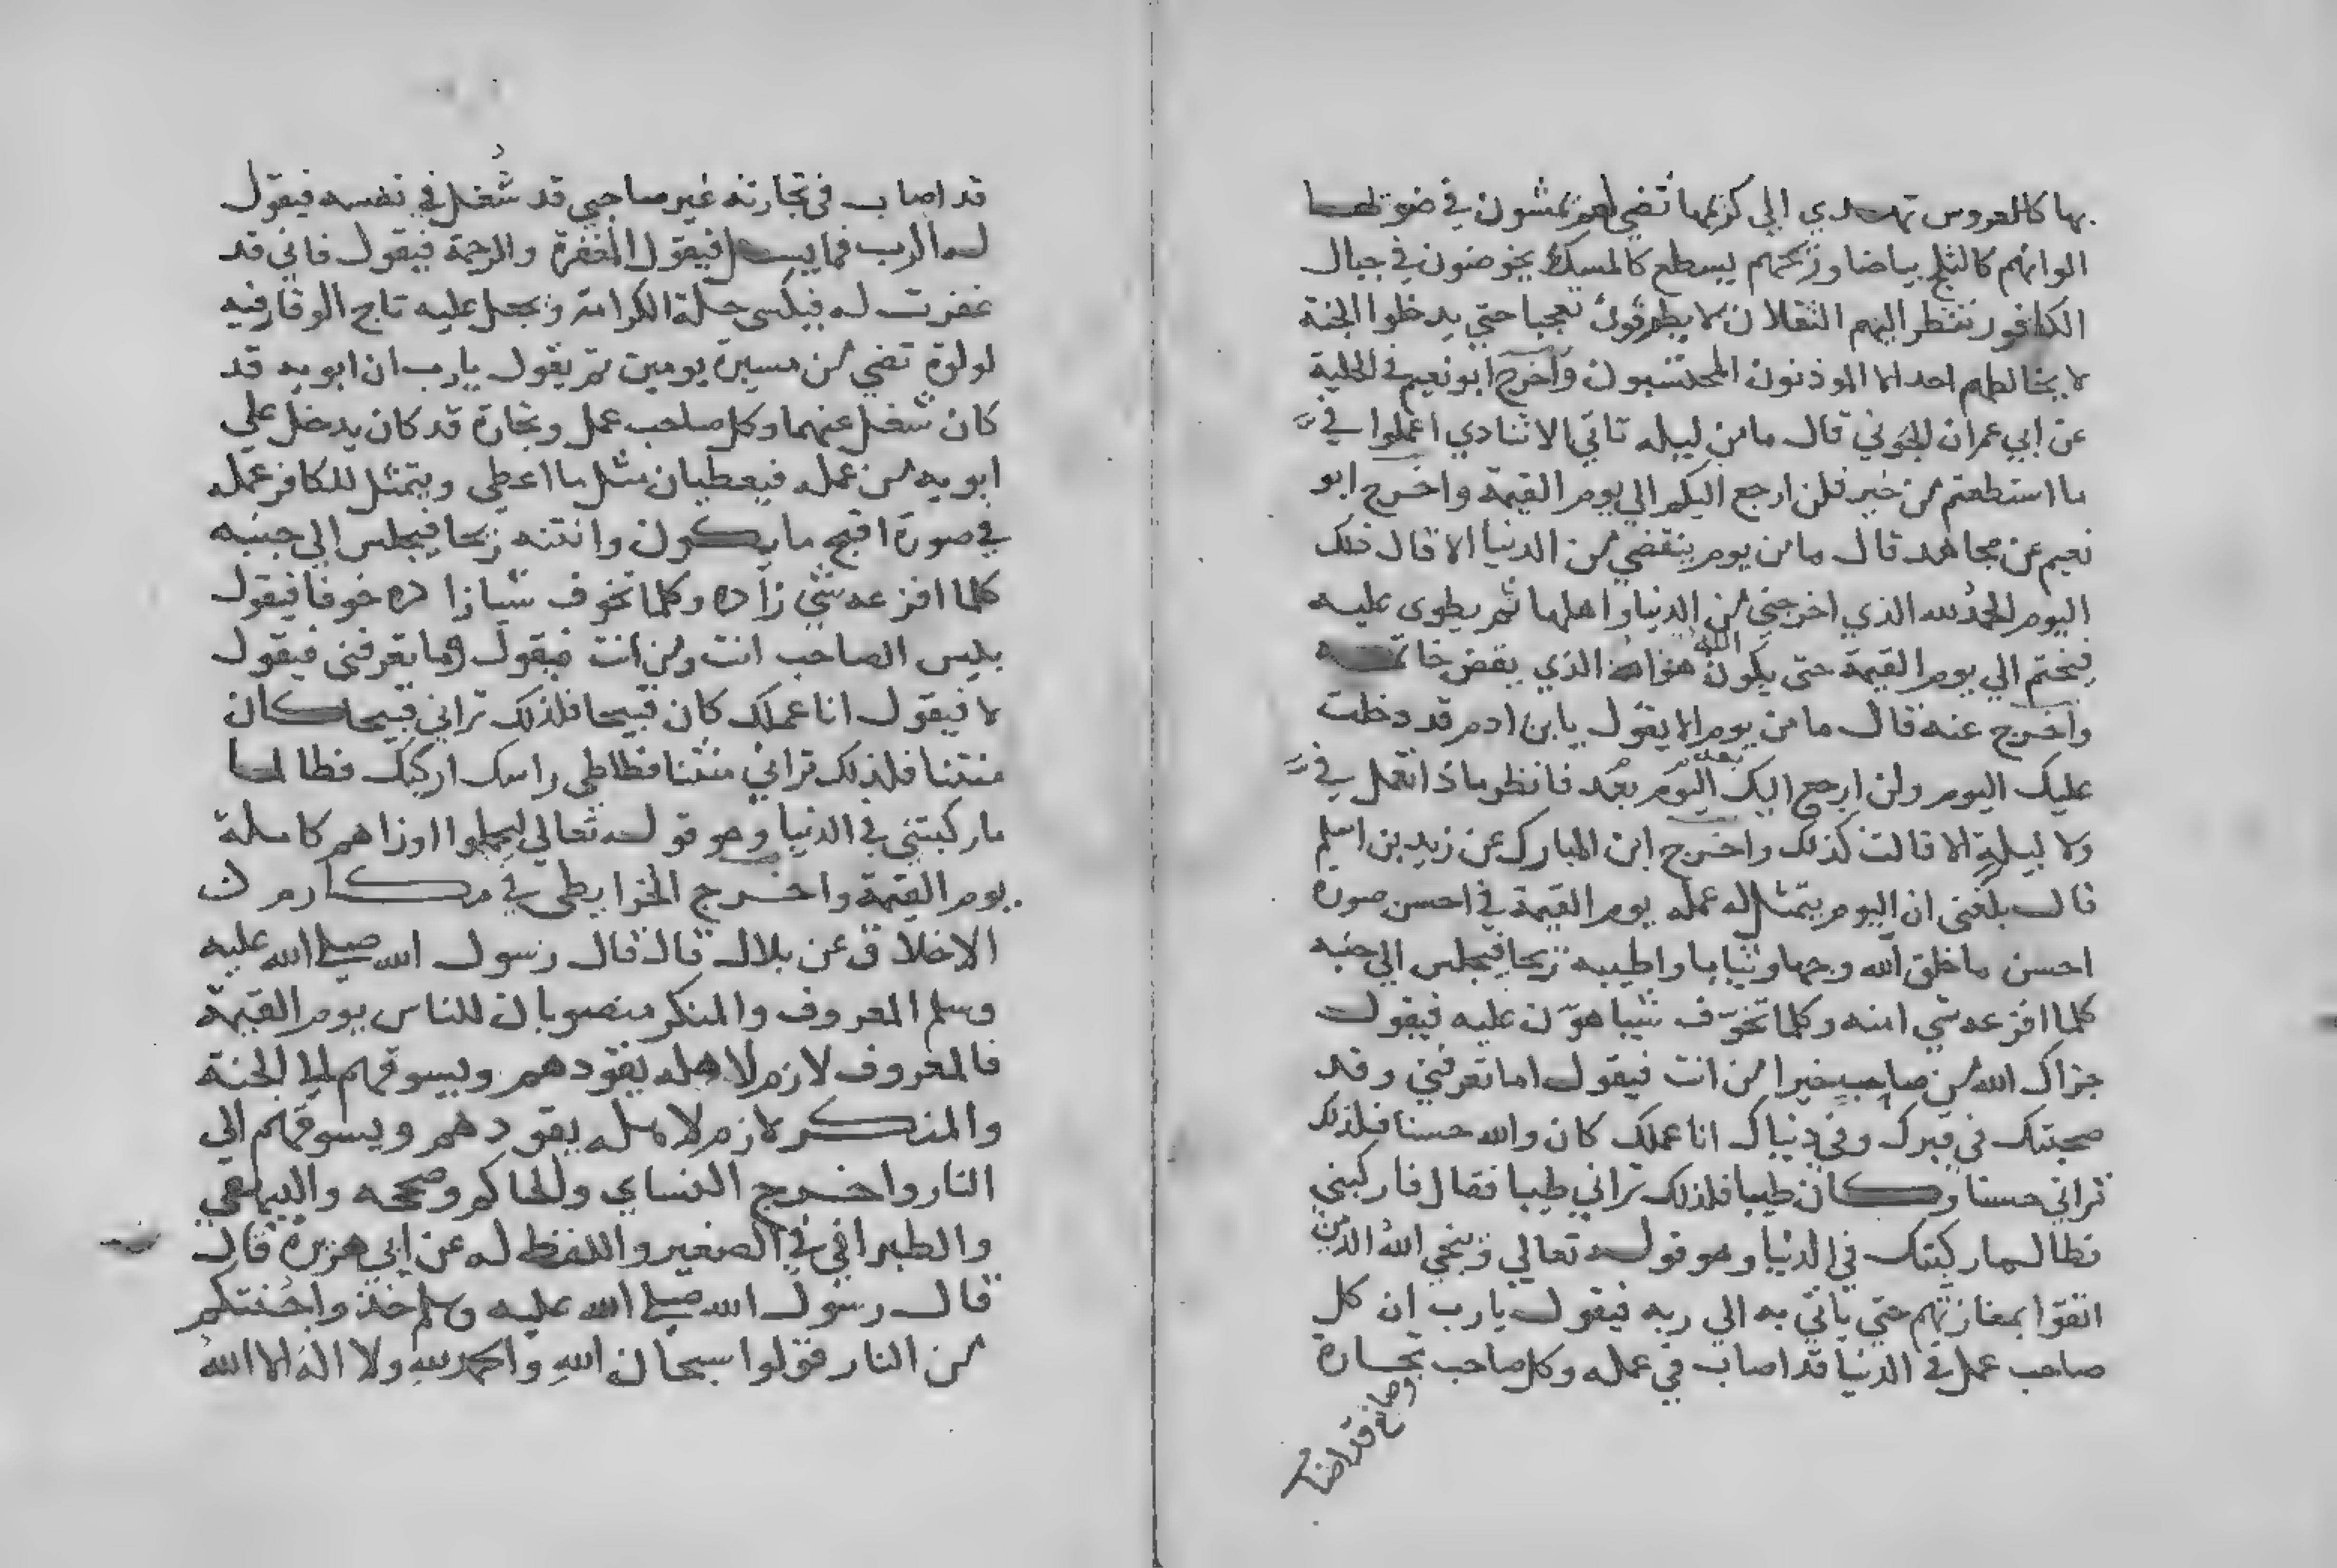 بها كالعروس تهدي الي كريمها تضي لهم يمشون في ضوئها
الوانهم كالثلج بياضا وريحهم يسطع كالمسك يخوضون في جبال
الكافور ننظر اليهم الثقلان لا يطرقون تعجبا حتي يدخلوا الجنة
لا يخالطهم احد الا الموذنون المحتسبون واخرج ابو نعيم في الحلية
عن ابي عمران الجوني قال ما من ليله تاتي الا تنادي اعملوا في
ما استطعتم من خير فلن ارجع اليكم الي يوم القيمة واخرج ابو
نعيم عن مجاهد قال ما من يوم ينقضي من الدنيا الا قال ذلك
اليوم الحمد لله الذي اخرجني من الدنيا واهلها ثم يطوى عليه
فيختم الي يوم القيمة حتى يكون الله هو الذي يفض خاتمه
واخرج عنه قال ما من يوم الا يقول يا بن ادم قد دخلت
عليك اليوم ولن ارجع اليك اليوم بعد فانظر ماذا تعمل في
ولا ليلة الا قالت كذلك واخرج ابن المبارك عن زيد بن اسلم
قال بلغني ان اليوم يتمثل له عمله يوم القيمة في احسن صورة
احسن ما خلق الله وجها وثيابا واطيبه ريحا فيجلس الي جنبه
كلما افزعه شي امنه وكلما تخوّف شيا هوّن عليه فيقول
جزاك الله من صاحب خيرا من انت فيقول اما تعرفني وقد
صحبتك في قبرك وفي دنياك انا عملك كان والله حسنا فلذلك
تراني حسنا وكان طيبا فلذلك تراني طيبا فقال فاركبني
فطالما ركبتك في الدنيا وهو قوله تعالي وينجي الله الذين
اتقوا بمفازتهم حتي ياتي به الي ربه فيقول يا رب ان كل
صاحب عمل في الدنيا قد اصاب في عمله وكل صاحب تجارة
وصانع قد اصاب
قد اصاب في تجارته غير صاحبي قد شُغل في نفسه فيقول
له الرب فما يسل فيقول المغفرة والرحمة فيقول فاني قد
غفرت له فيكسى حلة الكرامة ويجعل عليه تاج الوقار فيه
لولوة تضي من مسيرة يومين ثم يقول يا رب ان ابويه قد
كان شغل عنهما وكل صاحب عمل وتجارة قد كان يدخل علي
ابويه من عمله فيعطيان مثل ما اعطي ويتمثل للكافر عمله
في صورة اقبح ما يكون وانتنه ريحا فيجلس الي جنبه
كلما افزعه شي زاده وكلما تخوف شيا زاده خوفا فيقول
بليس الصاحب انت ومن انت فيقول وما تعرفني فيقول
لا فيقول انا عملك كان قبيحا فلذلك تراني قبيحا كان
منتنا فلذلك تراني منتنا فطاطي راسك اركبك فطالما
ما ركبتني في الدنيا وهو قوله تعالي ليحملوا اوزارهم كاملة
يوم القيمة واخرج الخرايطي في مكارم
الاخلاق عن بلال قال قال رسول الله صلى الله عليه
وسلم المعروف والمنكر منصوبان للناس يوم القيمة
فالمعروف لازم لاهله يقودهم ويسوقهم الي الجنة
والمنكر لازم لاهله يقودهم ويسوقهم الي
النار واخرج النساي والحاكم وصححه والبيهقي
والطبراني في الصغير واللفظ له عن ابي هريرة قال
قال رسول الله صلى الله عليه وسلم خذوا جُنتكم
من النار قولوا سبحان اللهِ والحمد للهِ ولا اله الا اللهُ